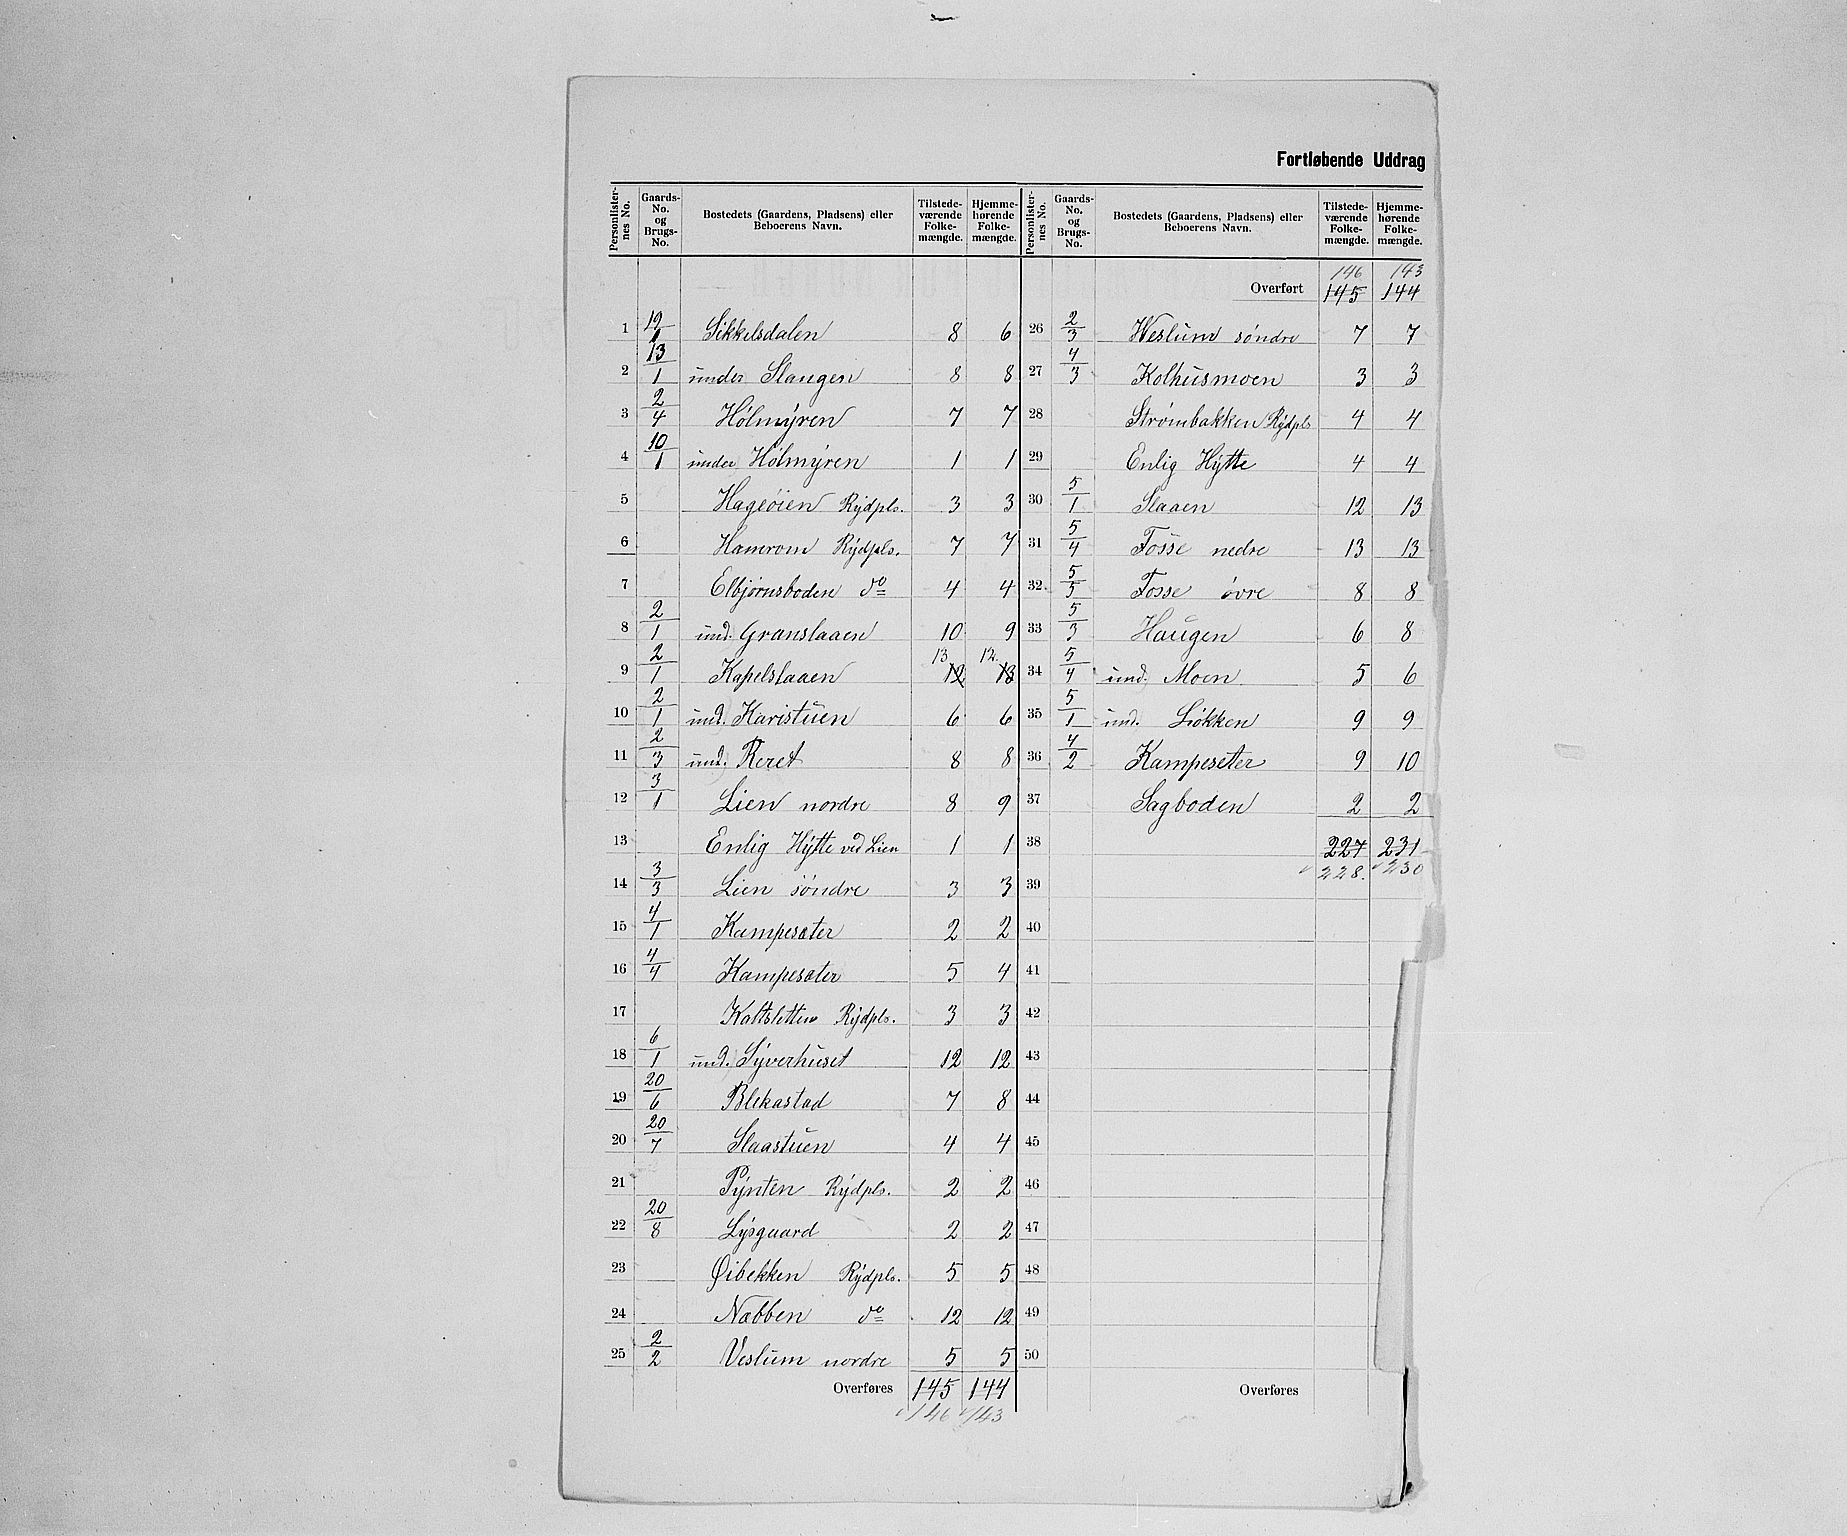 Fortløbende Uddrag
Personlister-nes No. | Gaards-No. og Brugs-No. | Bostedets (Gaardens, Pladsens) eller Beboerens Navn. | Tilstede-værende Folke-mængde. | Hjemme-hørende Folke-mængde.
1 19/1 Sikkelsdalen 8 6
2 13/1 under Slangen 8 8
3 2/4 Hólmýren 7 7
4 10/1 under Hólmýren 1 1
5 Hageöien Rýdpls. 3 3
6 Hamrom Rýdpls. 7 7
7 Elbjørnsboden do 4 4
8 2/1 und. Granslaaen 10 9
9 2/1 Kapelslaaen 12 13 13 12.
10 2/1 und. Karistuen 6 6
11 2/3 und. Reret 8 8
12 3/1 Lien nordre 8 9
13 Enlig Hýtte ved Lien 1 1
14 3/3 Lien söndre 3 3
15 4/1 Kampesæter 2 2
16 4/4 Kampesæter 5 4
17 Kaltsletten Rýdpls. 3 3
18 6/1 und. Sýverhuset 12 12
19 20/6 Blekastad 7 8
20 20/7 Slaastuen 4 4
21 Pýnten Rýdpls. 2 2
22 20/8 Lýsgaard 2 2
23 Øibekken Rýdpls. 5 5
24 Næbben do 12 12
25 2/2 Veslum nordre 5 5
Overføres 145 144
146 143
Personlister-nes No. | Gaards-No. og Brugs-No. | Bostedets (Gaardens, Pladsens) eller Beboerens Navn. | Tilstede-værende Folke-mængde. | Hjemme-hørende Folke-mængde.
146 143
Overført 145 144
26 2/3 Weslum söndre 7 7
27 4/3 Kolhusmoen 3 3
28 Strömbakken Rýdpls 4 4
29 Enlig Hýtte 4 4
30 5/1 Slaaen 12 13
31 5/4 Fosse nedre 13 13
32 5/5 Fosse övre 8 8
33 5/3 Haugen 6 8
34 5/4 und. Moen 5 6
35 5/1 und. Lökken 9 9
36 4/2 Kampeseter 9 10
37 Sagboden 2 2
38 227 231
228. 230
39
40
41
42
43
44
45
46
47
48
49
50
Overføres